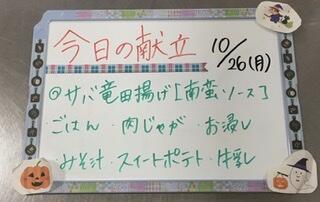 今日の献立 10/26(月)
@サバ竜田揚げ[南蛮ソース]
・ごはん ・肉じゃが ・お浸し
・みそ汁 ・スイートポテト ・牛乳